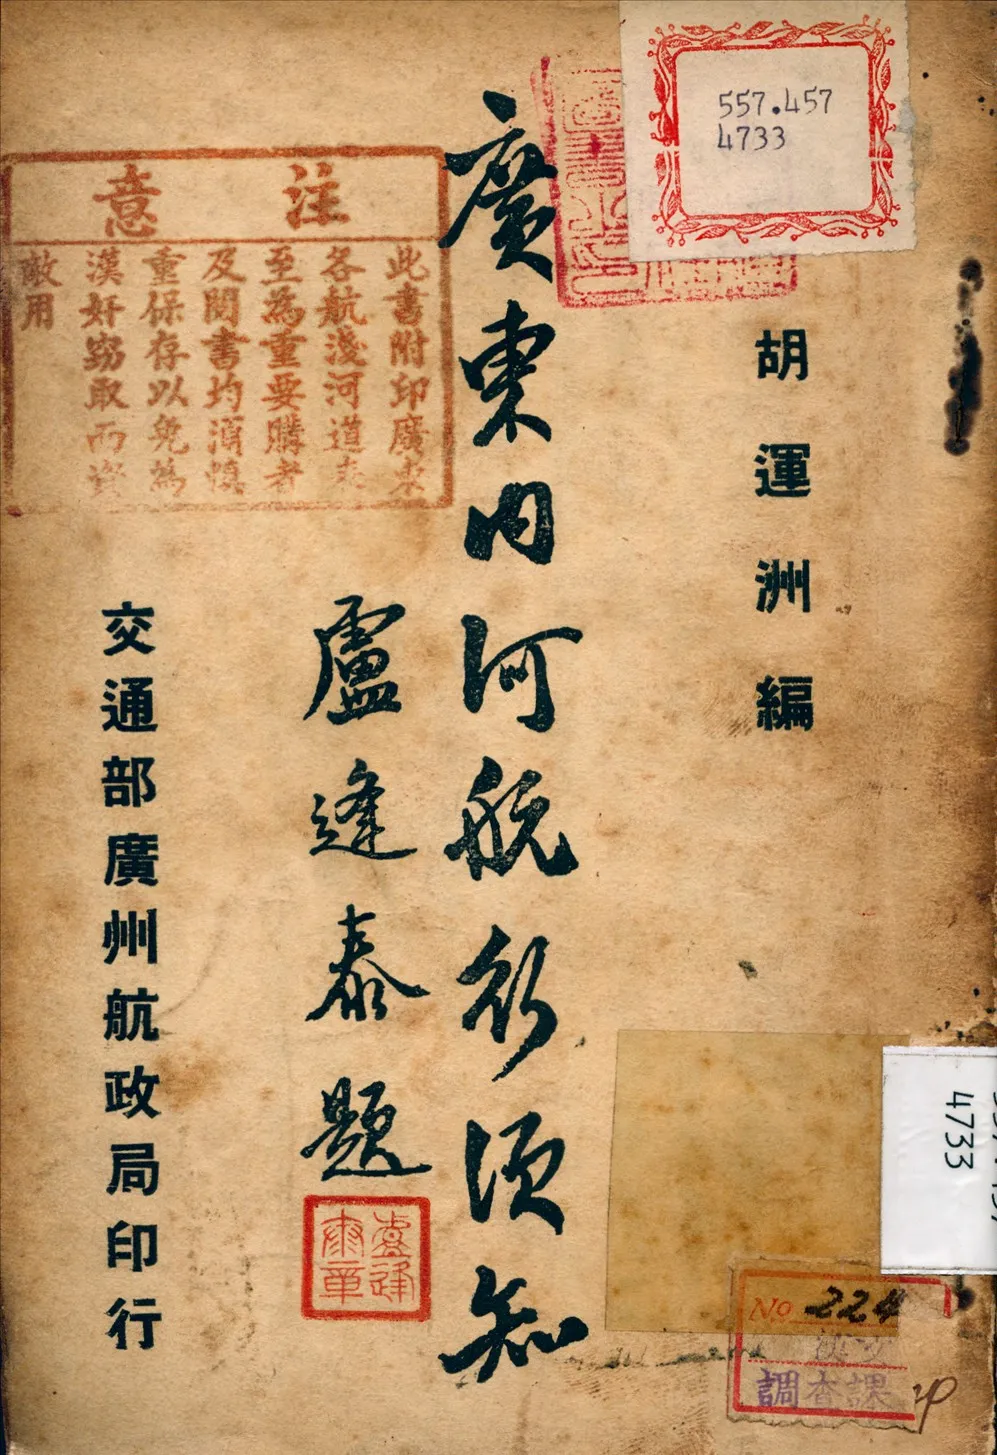 557.457
4733
胡運洲編
廣東內河航行須知
盧逢泰題
盧逢
泰章
注意
此書附印廣東
各航淺河道表
至為重要購者
及閱書均須慎
重保存以免為
漢奸窃取而資
敵用
交通部廣州航政局印行
4733
No 224
調查課